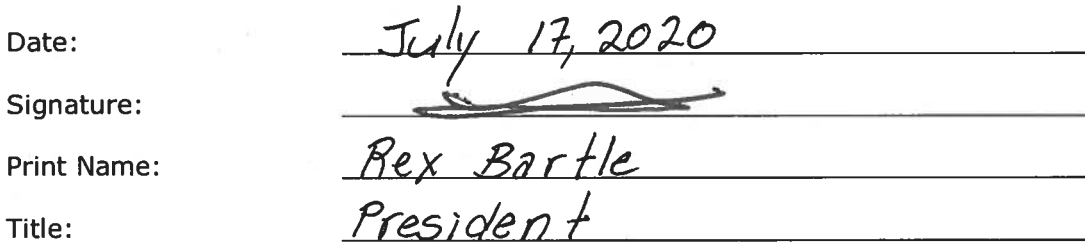 Date: July 17, 2020
Signature:
Print Name: Rex Bartle
Title: President